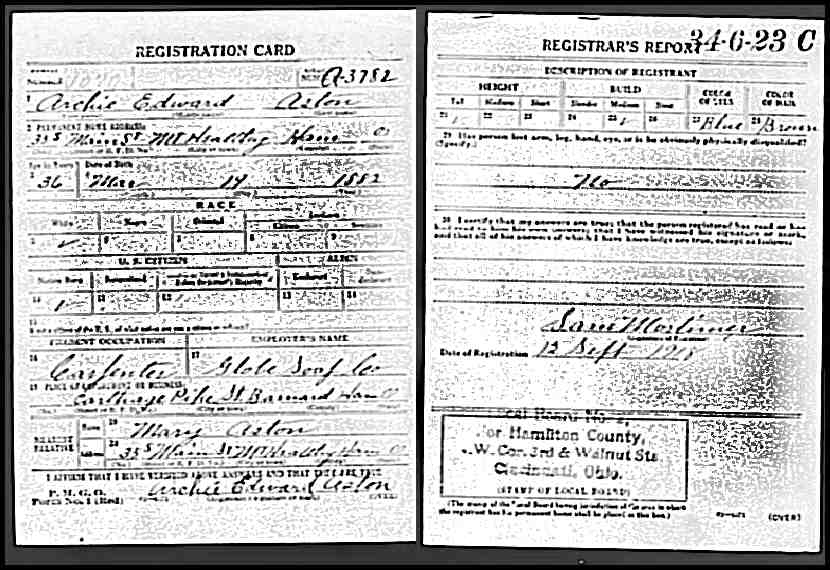 REGISTRATION CARD
A-3782
1 Archie Edward Aston
2 PERMANENT HOME ADDRESS:
Main St Mt Healthy Ham O
Age in Years Date of Birth
36 Mar 14 1882
RACE
White Negro Oriental
U. S. CITIZEN ALIEN
PRESENT OCCUPATION EMPLOYER'S NAME
Carpenter Globe Soap Co
PLACE OF EMPLOYMENT OR BUSINESS:
Carthage Pike St Barnard Ham O
NEAREST RELATIVE
Name Mary Aston
Address Main St Mt Healthy Ham O
I AFFIRM THAT I HAVE VERIFIED ABOVE ANSWERS AND THAT THEY ARE TRUE
P. M. G. O.
Form No. 1 (Red)
Archie Edward Aston
(OVER)
34-6-23 C
REGISTRAR'S REPORT
DESCRIPTION OF REGISTRANT
HEIGHT BUILD COLOR OF EYES COLOR OF HAIR
Tall Medium Short Slender Medium Stout
21 22 23 24 25 26 27 Blue 28 Brown
29 Has person lost arm, leg, hand, eye, or is he obviously physically disqualified?
(Specify.)
No
30 I certify that my answers are true; that the person registered has read or has
had read to him his own answers; that I have witnessed his signature or mark,
and that all of his answers of which I have knowledge are true, except as follows:
Sam Mortimer
Date of Registration 12 Sept 1918
Local Board No.
for Hamilton County,
W. Cor. 3rd & Walnut Sts
Cincinnati, Ohio.
(STAMP OF LOCAL BOARD)
(The stamp of the Local Board having jurisdiction of the area in which
the registrant has his permanent home shall be placed in this box.)
(OVER)